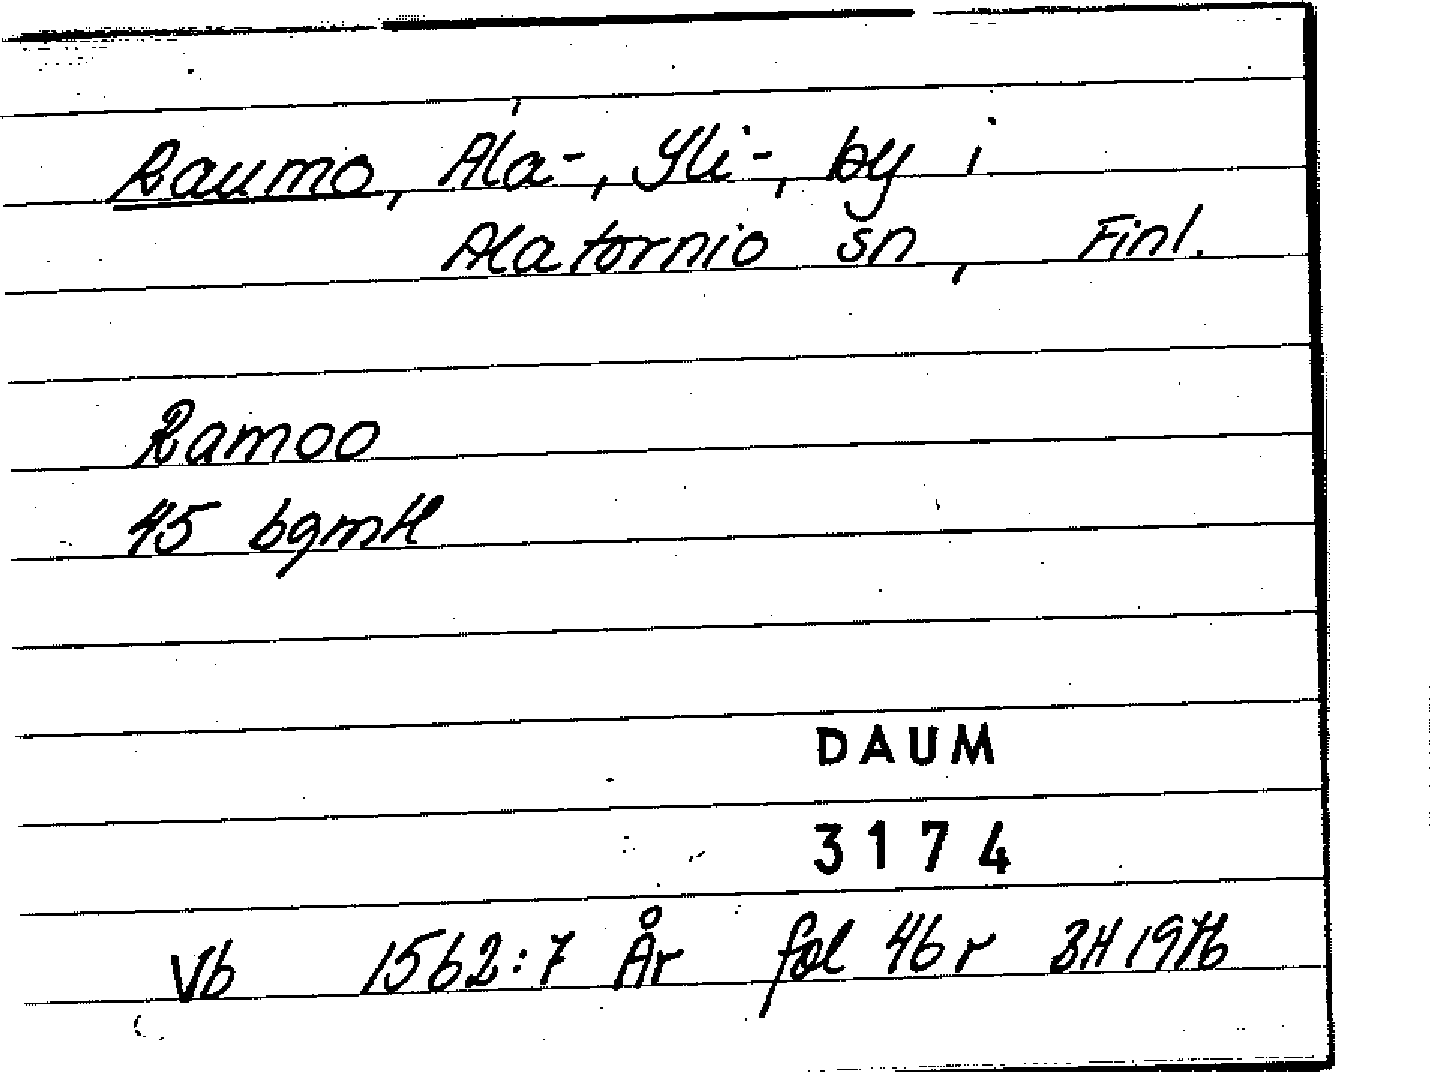 Raumo, Ala-, Yli-, by i
Alatornio sn, Finl.
Ramoo
45 bgmtl
DAUM
3174
Vb 1562:7 År fol 46r BH 1976